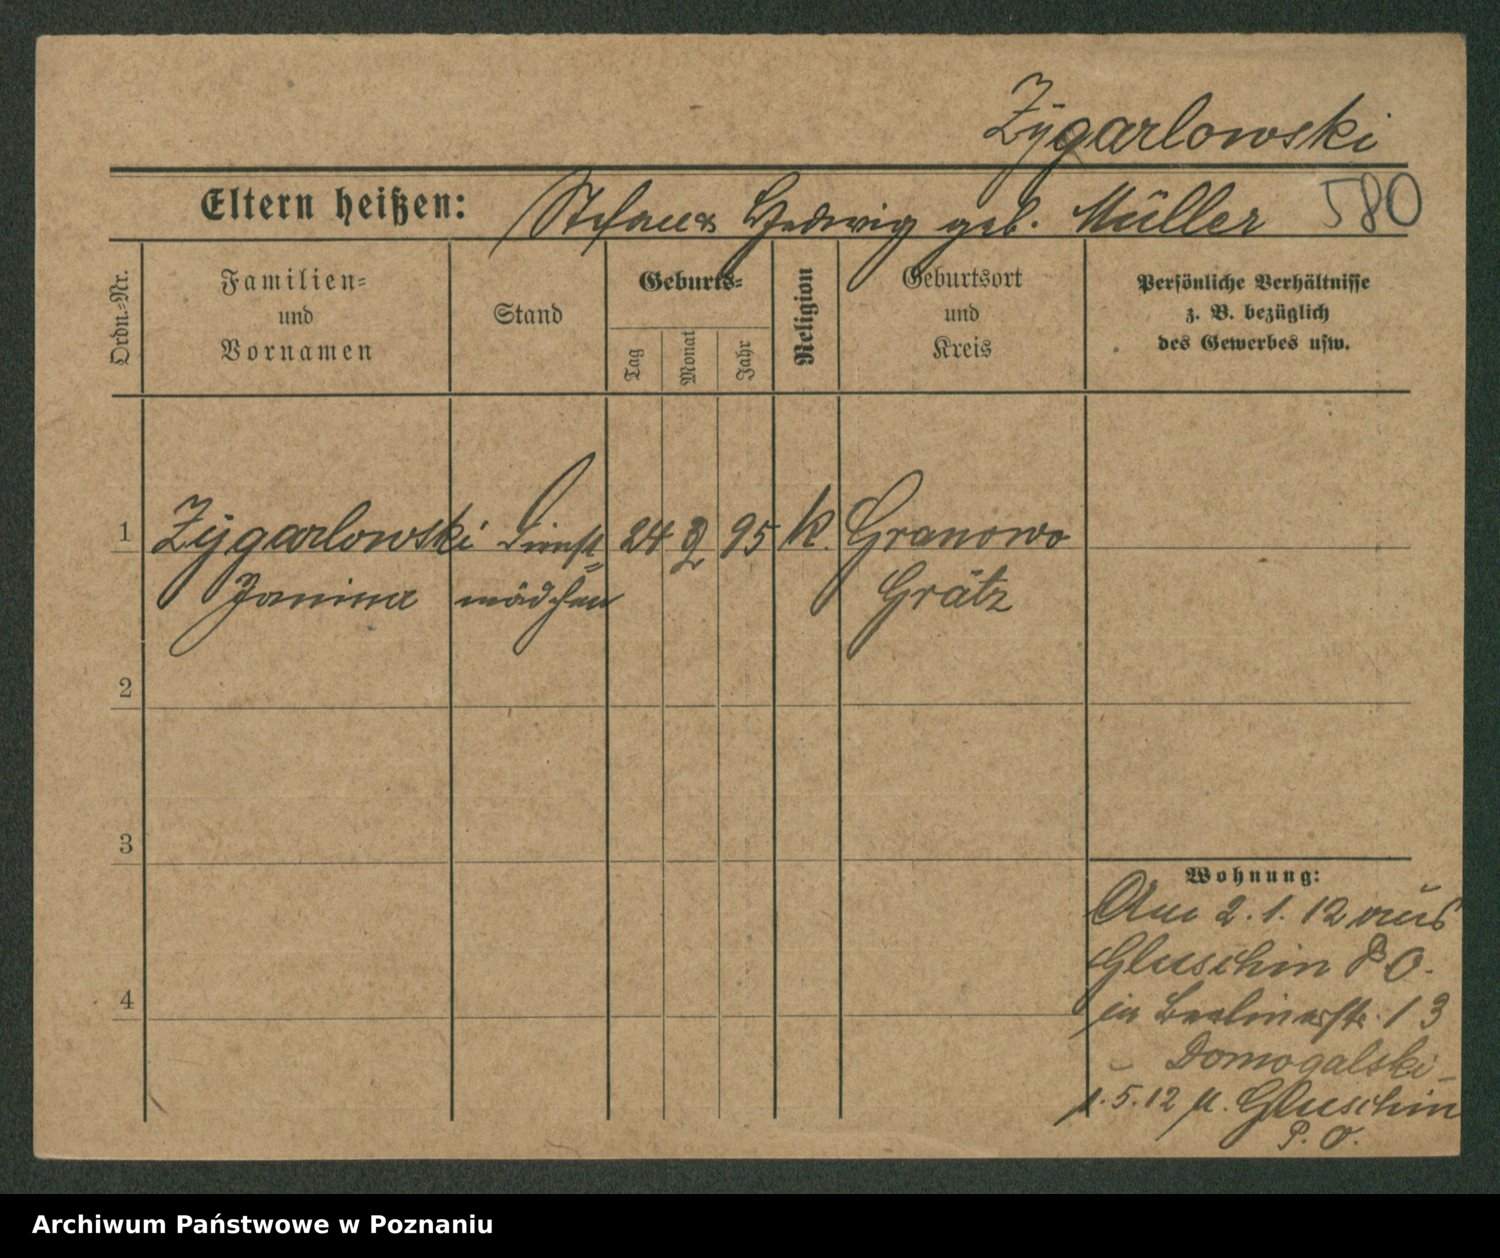 Zÿgarlowski
Eltern heißen: Stefan & Hedwig geb. Müller 580
Ordn.-Nr.
Familien-
und
Vornamen
Stand
Geburts-
Tag
Monat
Jahr
Religion
Geburtsort
und
Kreis
Persönliche Verhältnisse
z. B. bezüglich
des Gewerbes usw.
1 Zÿgarlowski Dienst= 24 2 95 k. Granowo
Janina mädchen Grätz
2
3
4
Wohnung:
Am 2.1.12 aus
Gluschin P O.
in Berlinerstr. 13
Domogalski
1.5.12 n. Gluschin
P. O.
Archiwum Państwowe w Poznaniu